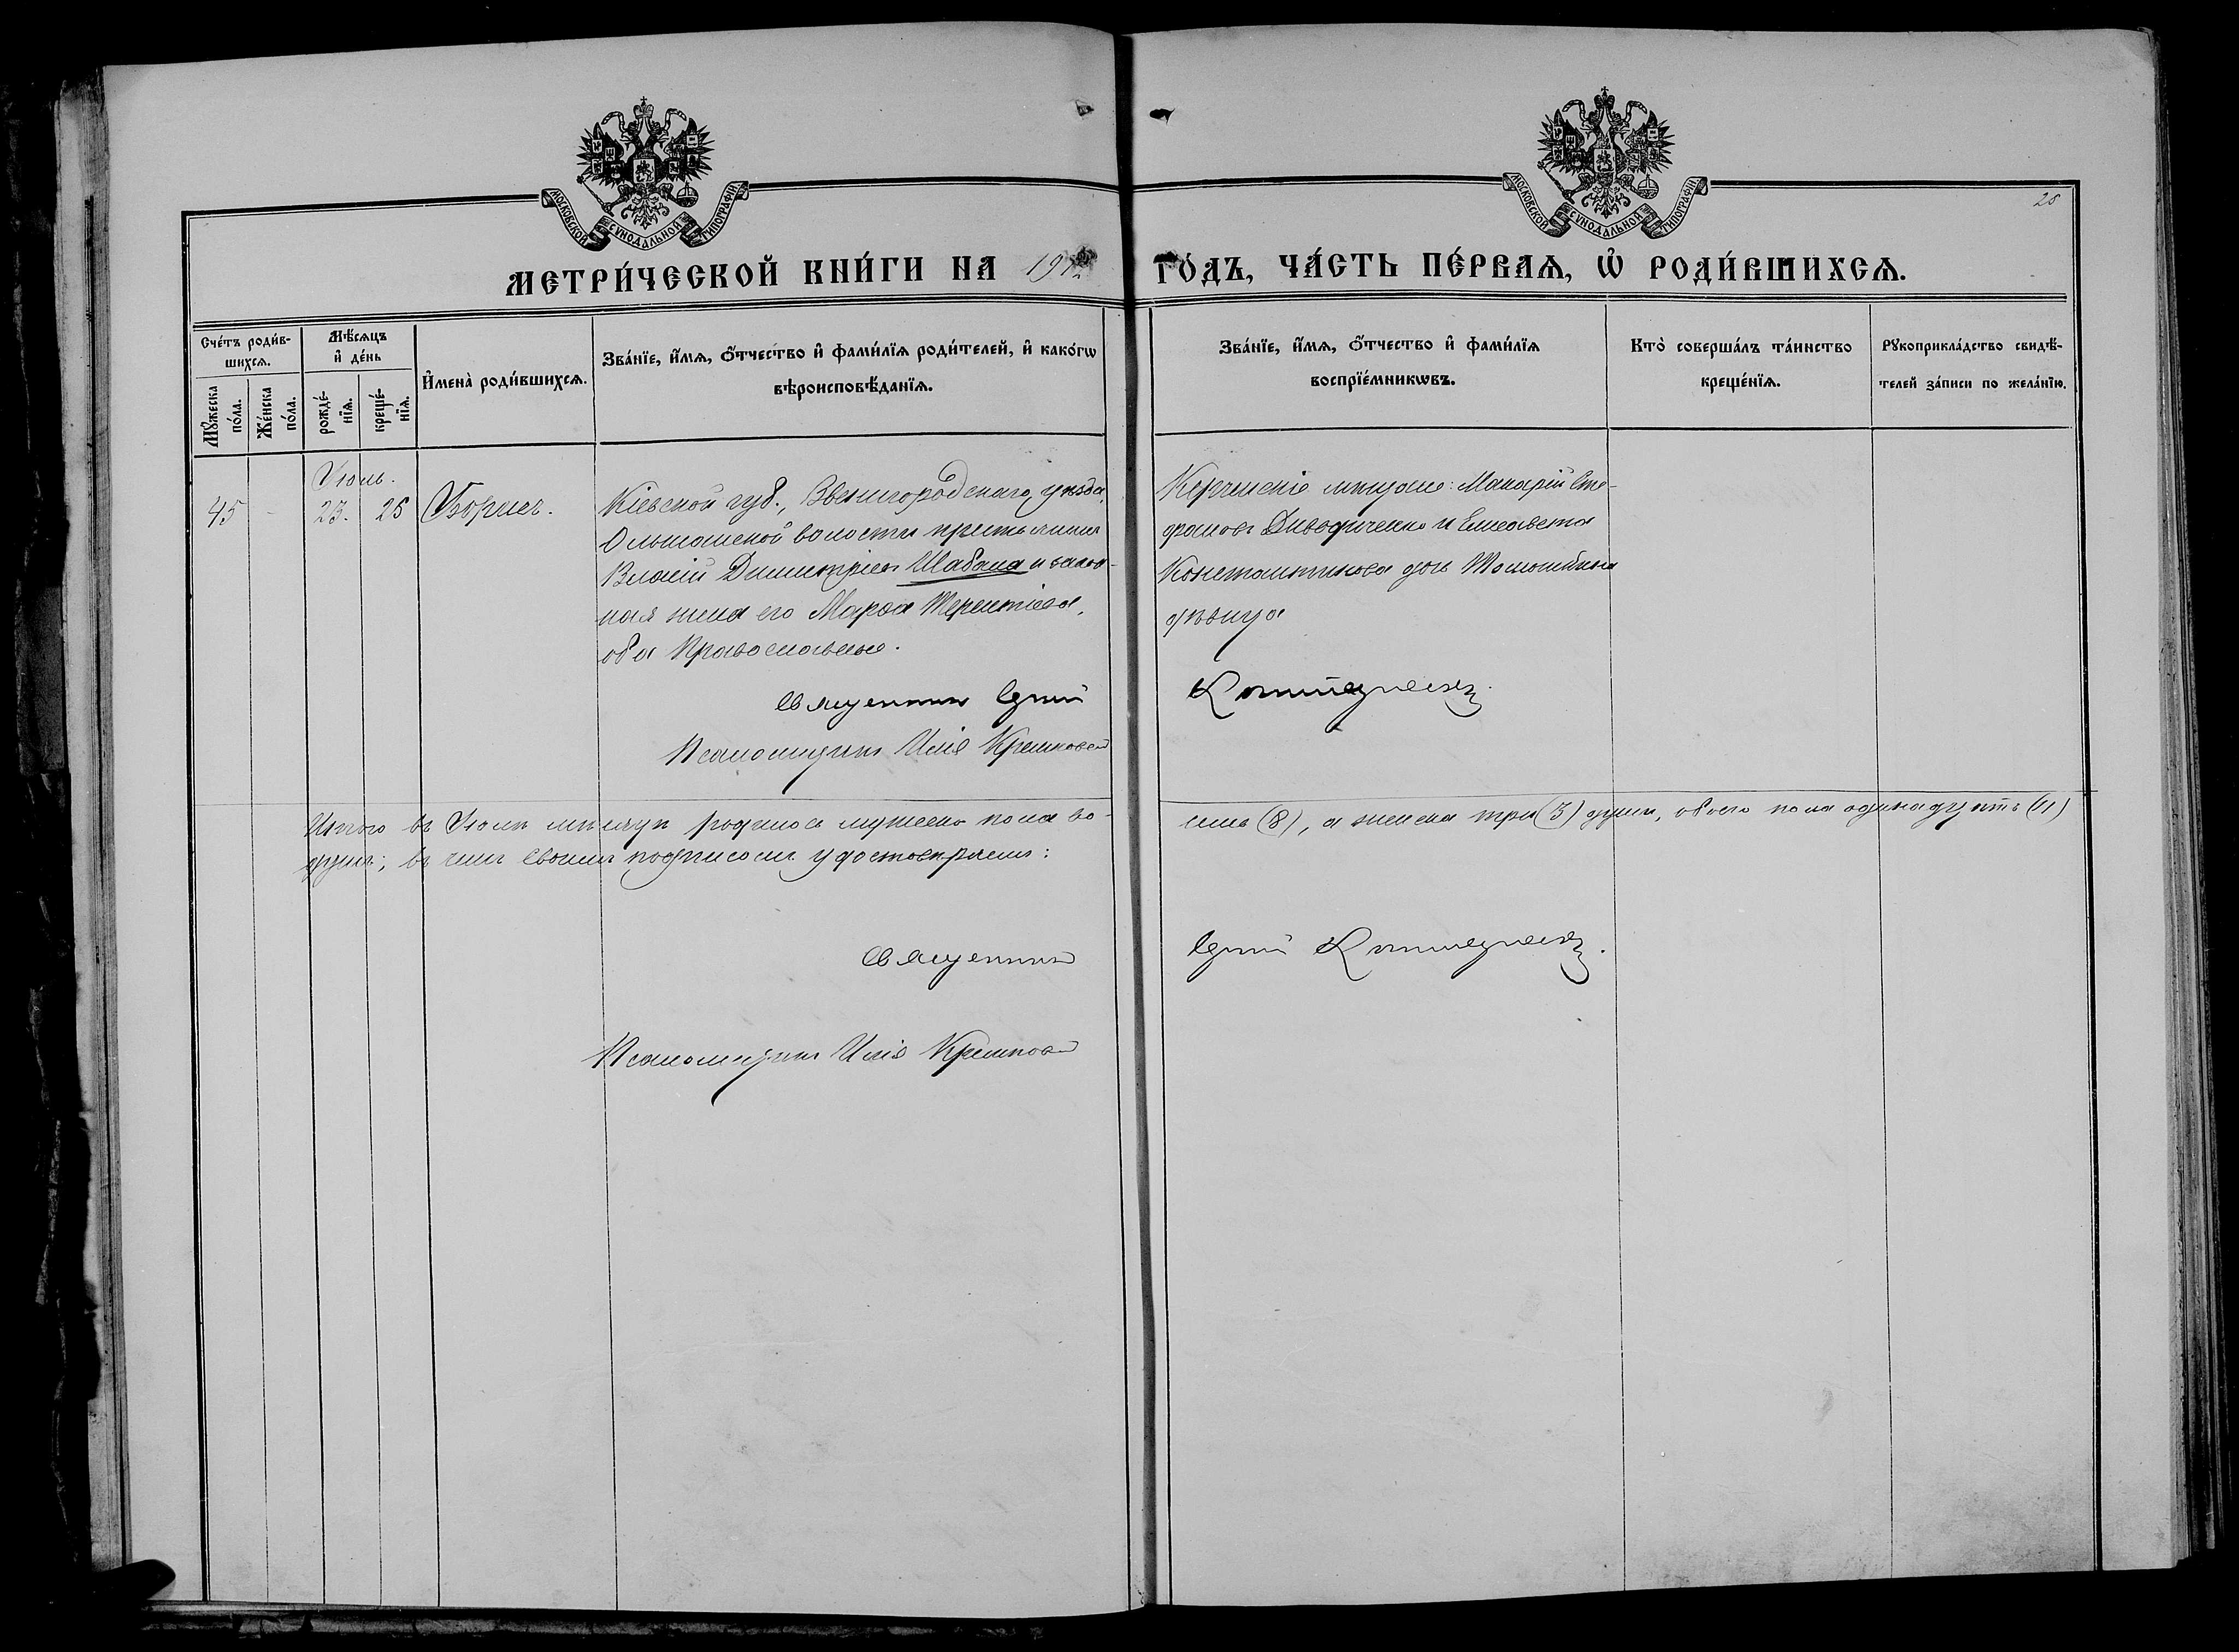 МОСКОВСКОЙ СѴНОДАЛЬНОЙ ТИПОГРАФІИ.
МОСКОВСКОЙ СѴНОДАЛЬНОЙ ТИПОГРАФІИ.
28
МЕТРИ́ЧЕСКОЙ КНИ́ГИ НА 191
ГО́ДЪ, ЧА́СТЬ ПЕ́РВАѦ, Ѡ҆ РОДИ́ВШИХСѦ.
Сче́тъ роди́в-
шихсѧ.
Мꙋ́жеска по́ла.
Же́нска по́ла.
Мѣ́сѧцъ и҆ де́нь
рожде́-нїѧ.
креще́-нїѧ.
И҆мена̀ роди́вшихсѧ.
Зва́нїе, и҆́мѧ, ѻ҆́тчество и҆ фами́лїѧ роди́телей, и҆ како́гѡ
вѣроисповѣ́данїѧ.
Зва́нїе, и҆́мѧ, ѻ҆́тчество и҆ фами́лїѧ
воспрїе́мникѡвъ.
Кто̀ соверша́лъ та́инство
креще́нїѧ.
Рꙋкоприкла́дство свидѣ́-
телей за́писи по жела́нїю.
Іюль.
45 - 23. 25 Борисъ.
Кіевской губ., Звенигородскаго уѣзда,
Ольшанской волости крестьянинъ
Власій Димитріевъ Шабала и закон-
ная жена его Марѳа Терентіева,
оба Православные.
Керченскіе мѣщане: Макарій Сте-
фановъ и Елисавета
Константинова дочь
дѣвица
Священникъ
Псаломщикъ Илія
Итого въ Іюлѣ мѣсяцѣ родилось мужеска пола во-
семь (8), а женска три (3) души, обоего пола одинадцать (11)
душъ; въ чемъ своимъ подписомъ удостовѣряемъ:
Священникъ
Псаломщикъ Илія